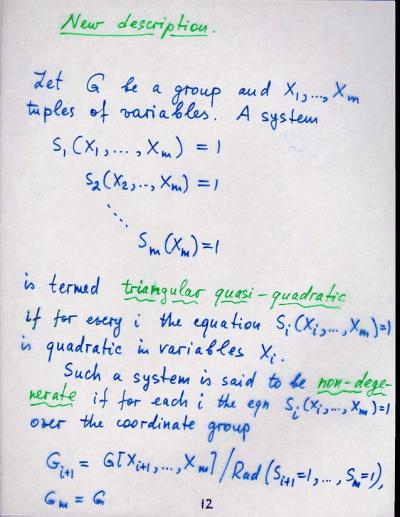 New description.
Let G be a group and X₁,..., Xₘ
tuples of variables. A system
S₁(X₁,..., Xₘ) = 1
S₂(X₂,.., Xₘ) = 1
⋱
Sₘ(Xₘ) = 1
is termed triangular quasi-quadratic
if for every i the equation Sᵢ(Xᵢ,..., Xₘ)=1
is quadratic in variables Xᵢ.
Such a system is said to be non-dege-
nerate if for each i the eqn Sᵢ(Xᵢ,..., Xₘ)=1
over the coordinate group
Gᵢ₊₁ = G[Xᵢ₊₁,..., Xₘ]/Rad(Sᵢ₊₁=1,..., Sₘ=1),
Gₘ = G
12